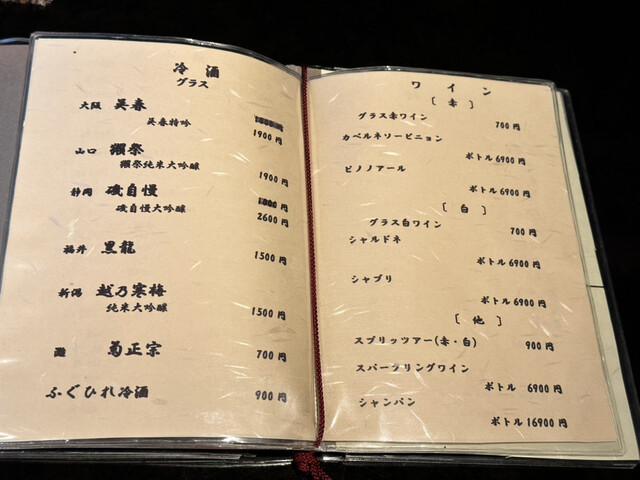 冷酒
グラス
大阪 呉春
呉春特吟
1900円
山口 獺祭
獺祭純米大吟醸
1900円
静岡 磯自慢
磯自慢大吟醸
2600円
福井 黒龍
1500円
新潟 越乃寒梅
純米大吟醸
1500円
灘 菊正宗
700円
ふぐひれ冷酒
900円
ワイン
[赤]
グラス赤ワイン
700円
カベルネソービニョン
ボトル6900円
ピノノアール
ボトル6900円
[白]
グラス白ワイン
700円
シャルドネ
ボトル6900円
シャブリ
ボトル6900円
[他]
スプリッツアー(赤・白)
900円
スパーツリングワイン
ボトル 6900円
シャンパン
ボトル16900円